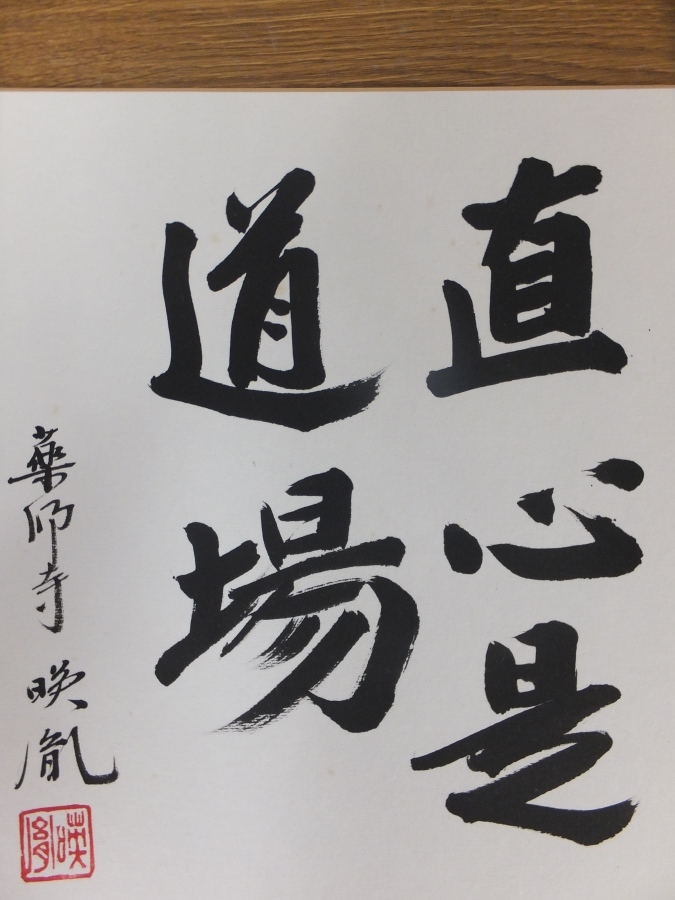 直心是
道場
薬師寺 暎胤
暎胤